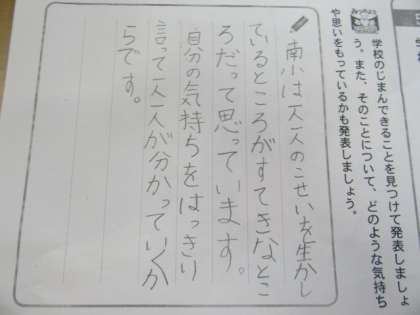 学校のじまんできることを見つけて発表しましょ
う。また、そのことについて、どのような気持ち
や思いをもっているかも発表しましょう。
南小は一人一人のこせいを生かし
ているところがすてきなとこ
ろだって思っています。
自分の気持ちをはっきり
言って一人一人が分かっていくか
らです。